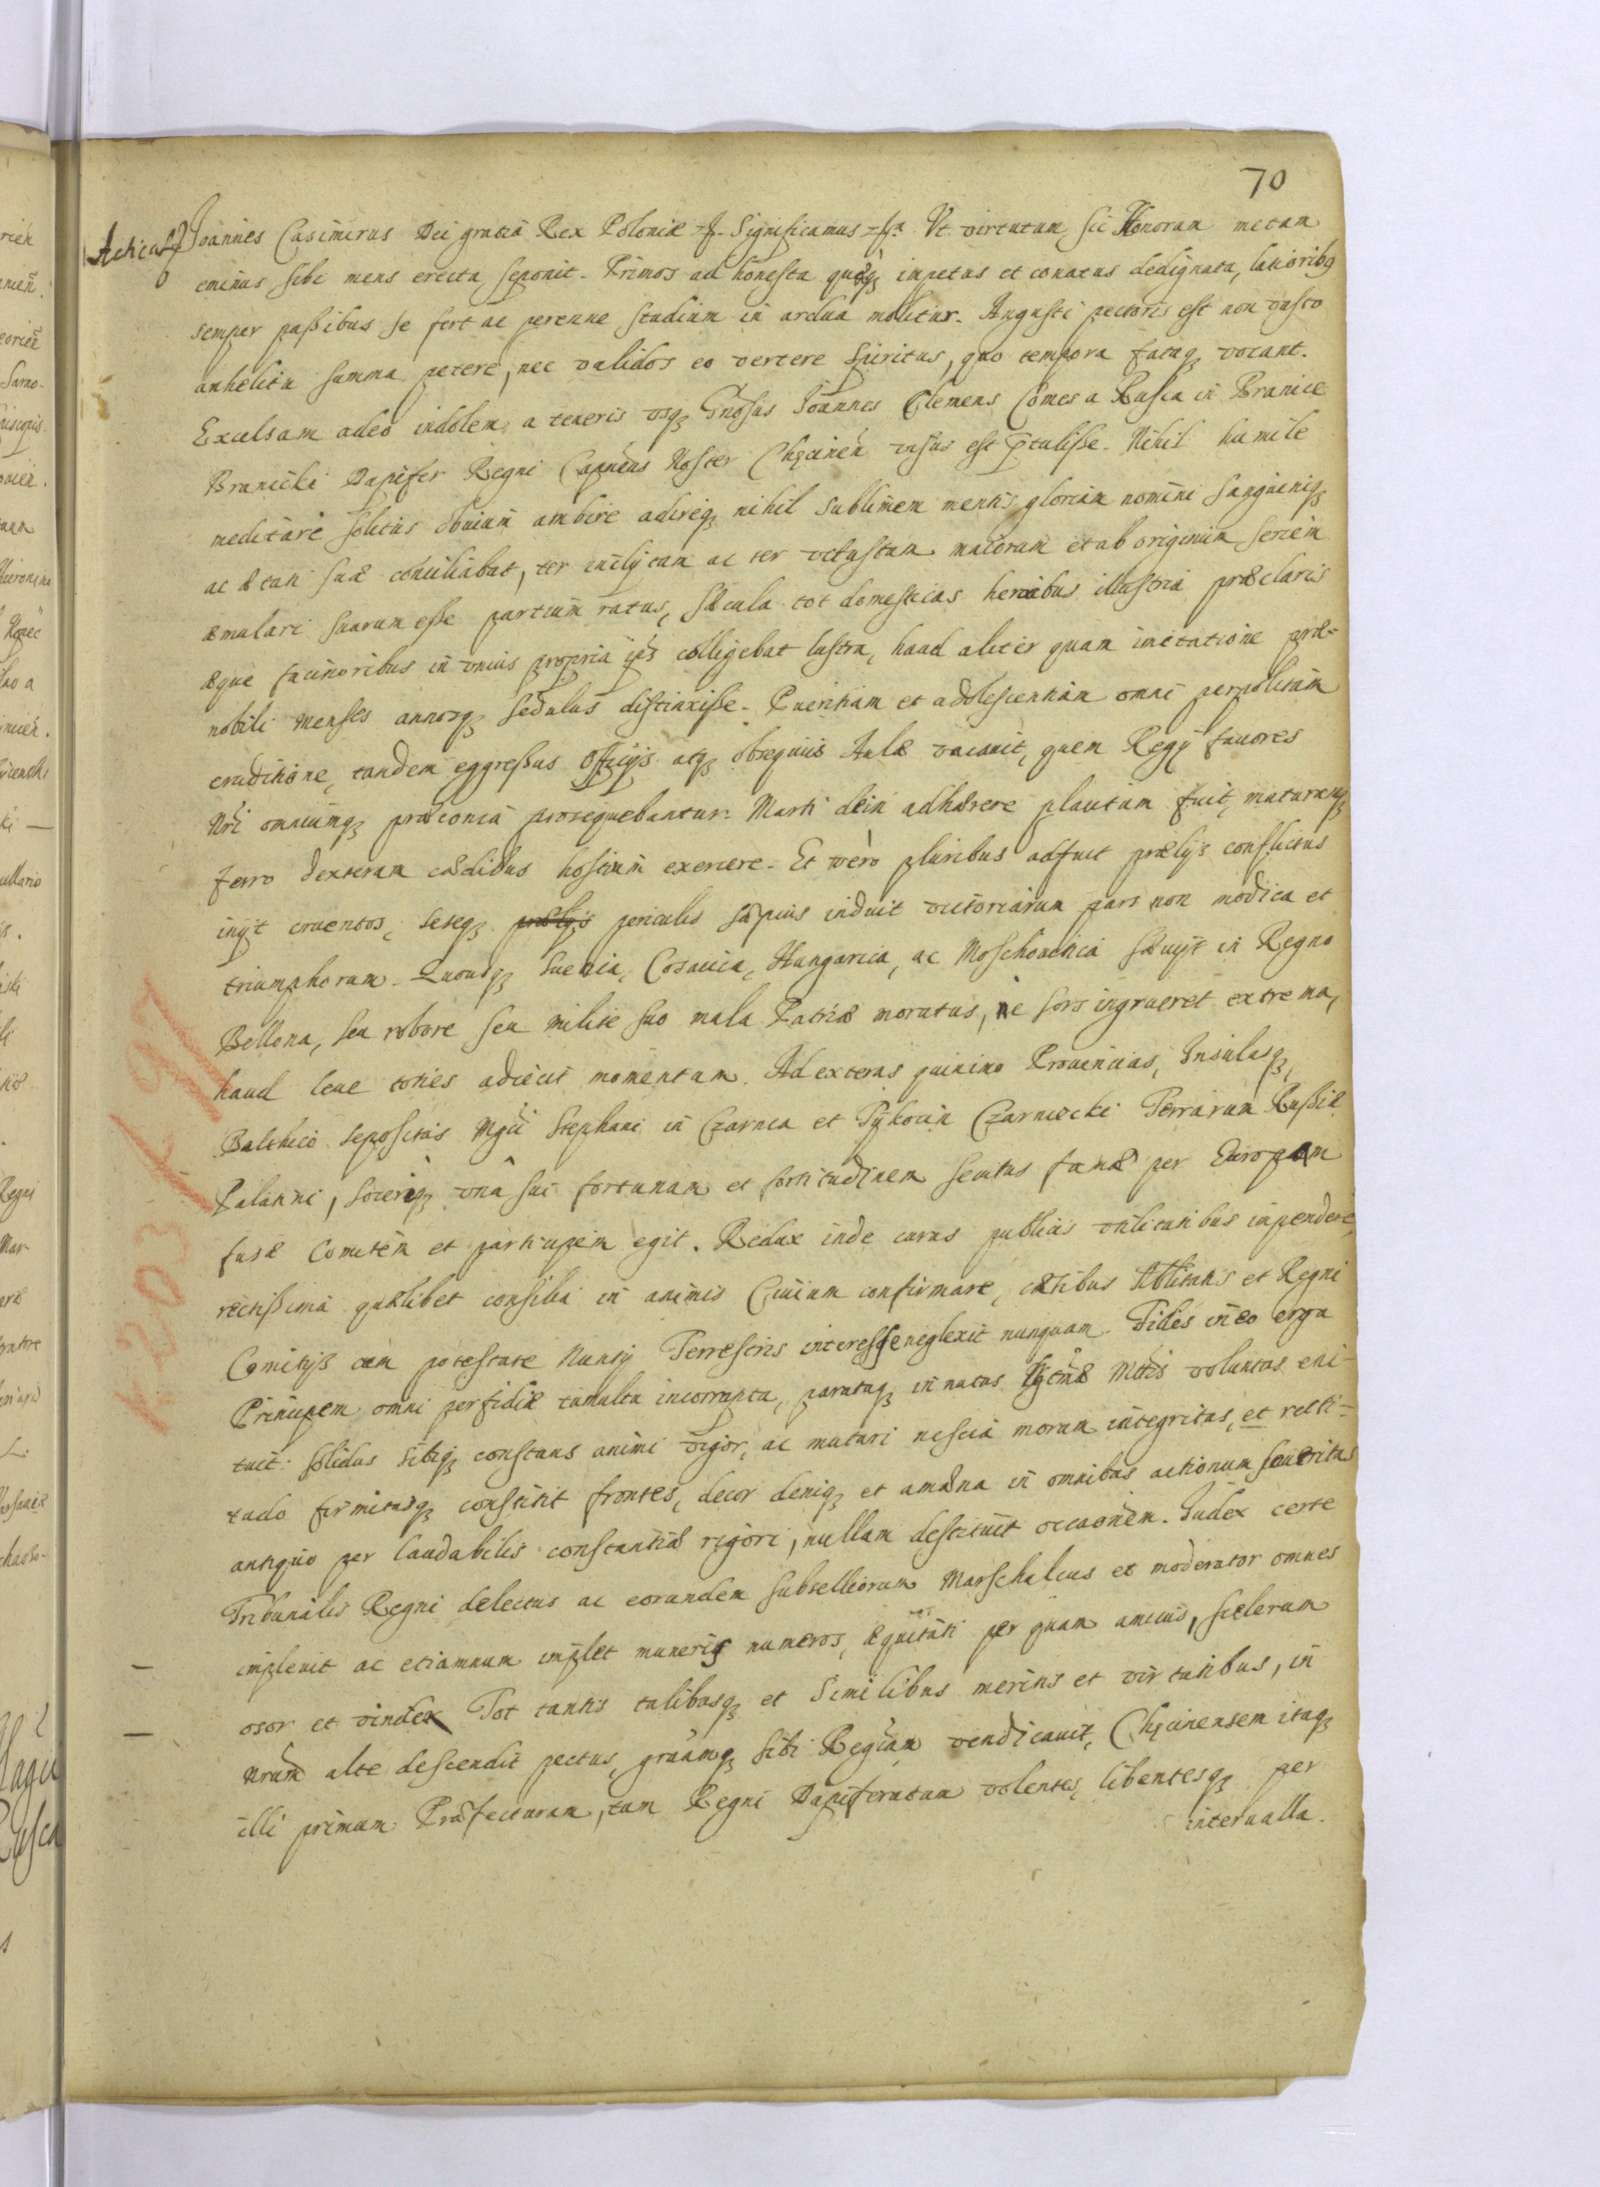 70
Joannes Casimirus Dei gratia Rex Poloniæ Significamus Vt virtutum sic Honorum metam
eminus sibi mens erecta seponit. Primos ad honesta quæq inpetus et conatus dedignata, latioribq
semper paßibus se fert ac perenne studium in ardua molitur. Angusti pectoris est non vasto
anhelitu summa petere, nec validos eo vertere Spiritus, quo tempora fataq vocant.
Excelsam adeo indolem a teneris vsq Gnosus Joannes Clemens Comes a Ruscа in Branice
Branicki Dapifer Regni Capneus Noster Chęcineń visus est ptuliße. Nihil humile
meditari solitus obuium ambire adireq nihil sublimem mentis gloriam nomini sanguiniq
ac ætati suæ conciliabat, ter inclytam ac ter vetustam maiorum et ab originum seriem
æmulari suarum eße partium ratus, sæcula tot domesticis heroibus illustria præclaris
æque facinoribus in vnius propria ips colligebat lustra, haud aliter quam imitatione præ-
nobili menses annosq sedulus distinxiße. Pueritiam et adolescentiam omni perpolitam
eruditione, tandem eggreßus Officijs atq obsequiis Aulæ vacauit, quem Regij fauores
Nri omniumq præconia prosequebantur. Marti dein adhærere plautum fuit, maturamq
ferro dexteram cædibus hostium exercere. Et vero pluribus adfuit prælijs conflictus
inijt cruentos, seseq prælijs periculis sæpius induit victoriarum pars non modica et
triumphorum. Quousq Suenia, Cosacica, Hungarica, ac Moschouitica sæuijt in Regno
Bellona, seu robore seu milite suo mala Patriæ moratus, ne sors ingrueret extrema,
haud leue toties adiecit momentum. Ad exteras quinimo Prouincias, Insulasq
Balthico sepositas Mgci Stephani in Czarnca et Tykocin Czarniecki Terrarum Rußiæ
Palatini, soceriq vnâ sui fortunam et fortitudinem secutus famæ per Europam
fusæ Comitem et participem egit. Redux inde curas publicis vtilitatibus inpendere,
rectißima quælibet consilia in animis Ciuium confirmare, cætibus Nbblitatis et Regni
Comitijs cum potestate Nuntij Terrestris intereße neglexit nunquam. Fides in eo erga
Principem omni perfidiæ tumultu incorrupta, parataq in nutus Mttis voluntas eni-
tuit: solidus sibiq constans animi vigor, ac mutari nescia morum integritas, et recti-
tudo firmitasq constitit frontes, decor deniq et amæna in omnibus actionum seueritas
antiquo per laudabilis constantiæ rigori, nullam destituit occaonem. Iudex certe
Tribunalis Regni delectus ac eorundem subselliorum Marschalcus et moderator omnes
impleuit ac etiamnum implet muneris numeros, æquitati per quam amicus, scelerum
osor et vindex Tot tantis talibusq et similibus meritis et virtutibus, in
Nrum alte descendit pectus, graamq sibi Regiam vendicauit, Chęcinensem itaq
illi primum Præfecturam, tum Regni Dapiferatum volentes libentesq per
interualla.